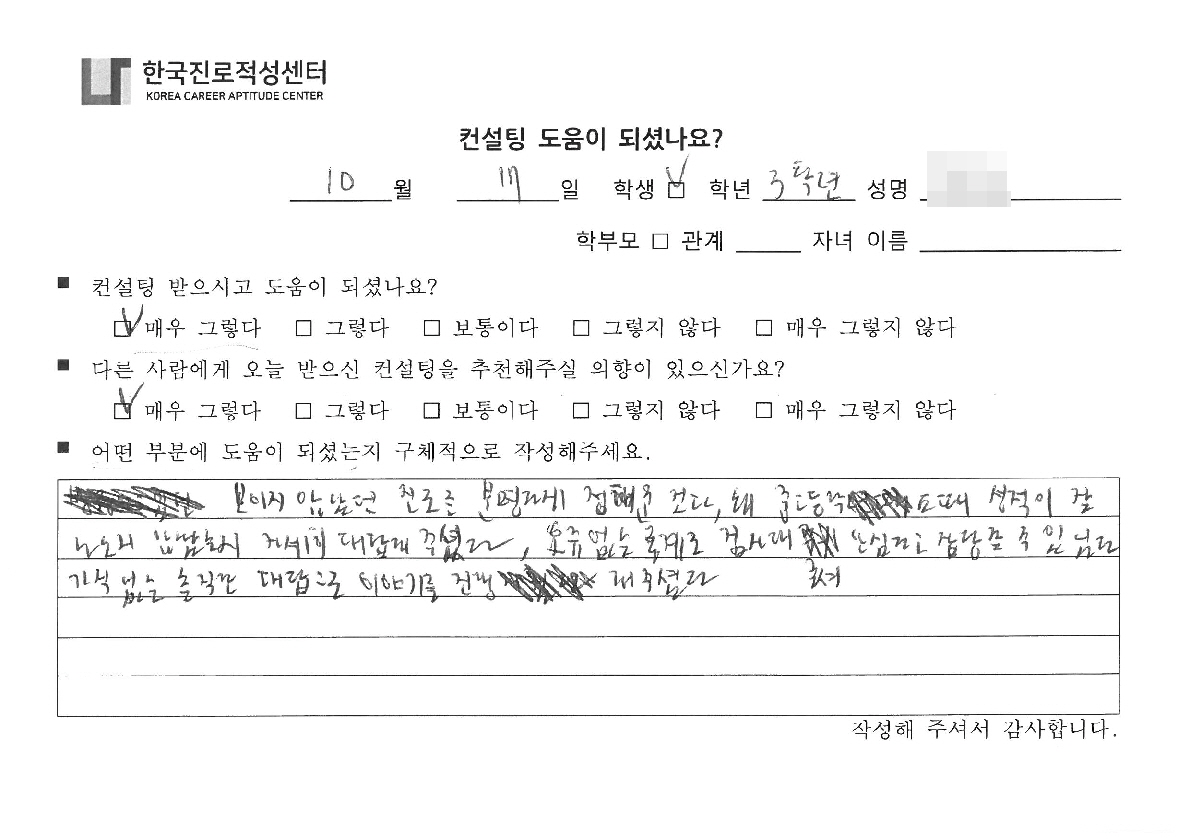 한국진로적성센터
KOREA CAREER APTITUDE CENTER
컨설팅 도움이 되셨나요?
10 월 17 일 학생 □ 학년 3학년 성명
학부모 □ 관계 자녀 이름
■ 컨설팅 받으시고 도움이 되셨나요?
□ 매우 그렇다 □ 그렇다 □ 보통이다 □ 그렇지 않다 □ 매우 그렇지 않다
■ 다른 사람에게 오늘 받으신 컨설팅을 추천해주실 의향이 있으신가요?
□ 매우 그렇다 □ 그렇다 □ 보통이다 □ 그렇지 않다 □ 매우 그렇지 않다
■ 어떤 부분에 도움이 되셨는지 구체적으로 작성해주세요.
보이지 않았던 진로를 분명하게 정해준 것다, 왜 중고등학 때 성적이 잘
자세히 대답해 주셨다, 오류없는 통계로 검사해 안심하고
가식 없는 솔직한 대답으로 이야기를 진행 해주셨다
작성해 주셔서 감사합니다.